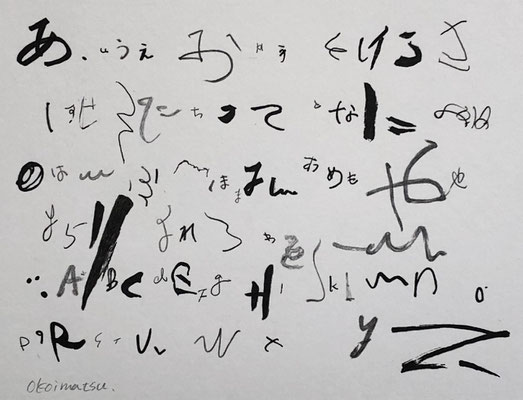 あ、いうえ お け さ
し すせ そ ちつて と な に
の は ふ へ ほ ま み む め も や ゆ
よ ら り れ ろ わ を ん
A B C d E F g H i J k L m n o
p q R s t u v w x y z
Okoimatsu.